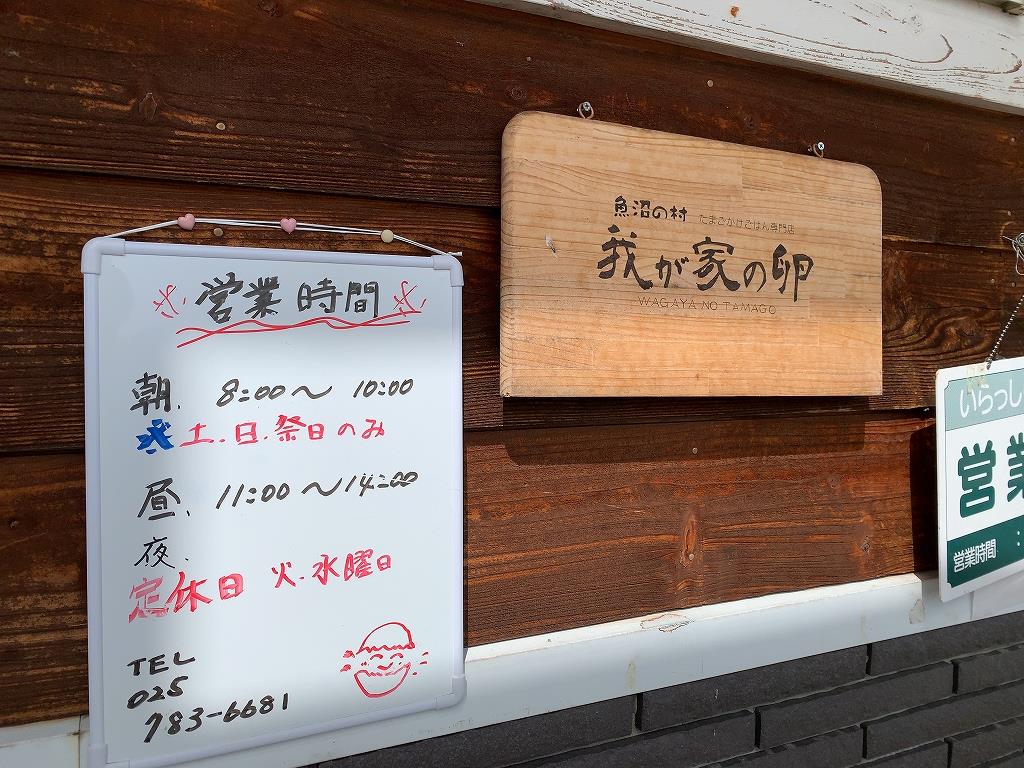 営業時間
朝. 8:00～10:00
※土.日.祭日のみ
昼. 11:00～14:00
夜.
定休日 火.水曜日
TEL
025
783-6681
魚沼の村 たまごかけごはん専門店
我が家の卵
WAGAYA NO TAMAGO
いらっし
営業
営業時間: